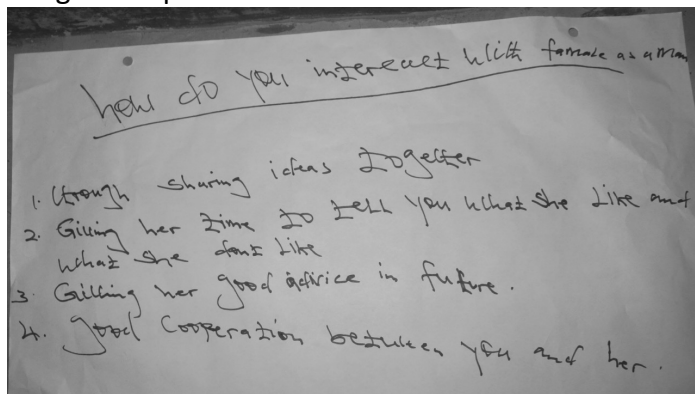 how do you intereact with famale as a man
1. through sharing ideas together
2. Giving her time to tell you what she like and
what she dont like
3. Gilling her good advice in future.
4. good cooperation between you and her.